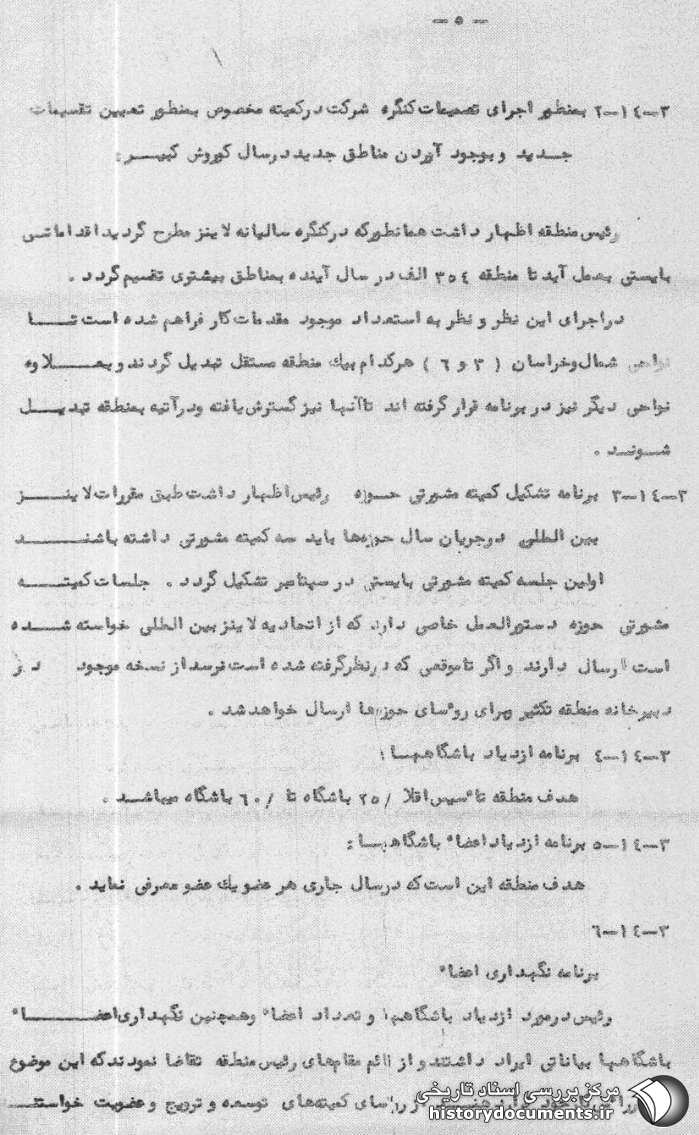 - ۵ -
۳-۱٤-۲ بمنظور اجرای تصمیمات کنگره شرکت در کمیته مخصوص بمنظور تعیین تقسیمات
جدید و بوجود آوردن مناطق جدید در سال کوروش کبیر :
رئیس منطقه اظهار داشت همانطور که در کنگره سالیانه لاینز مطرح گردید اقداماتی
بایستی بعمل آید تا منطقه ۳۵٤ الف در سال آینده بمناطق بیشتری تقسیم گردد .
در اجرای این نظر و نظر به استعداد موجود مقدمات کار فراهم شده است تا
نواحی شمال و خراسان ( ۳ و ٦ ) هر کدام بیک منطقه مستقل تبدیل گردند و بعلاوه
نواحی دیگر نیز در برنامه قرار گرفته اند تا آنها نیز گسترش یافته و در آتیه بمنطقه تبدیل
شوند .
۳-۱٤-۳ برنامه تشکیل کمیته مشورتی حوزه رئیس اظهار داشت طبق مقررات لاینز
بین المللی در جریان سال حوزه‌ها باید سه کمیته مشورتی داشته باشند
اولین جلسه کمیته مشورتی بایستی در سپتامبر تشکیل گردد . جلسات کمیته
مشورتی حوزه دستورالعمل خاصی دارد که از اتحادیه لاینز بین المللی خواسته شده
است ارسال دارند و اگر تا موقعی که در نظر گرفته شده است نرسد از نسخه موجود در
دبیرخانه منطقه تکثیر و برای روسای حوزه‌ها ارسال خواهد شد .
۳-۱٤-٤ برنامه ازدیاد باشگاهها :
هدف منطقه تاسیس اقلا /۲۵ باشگاه تا /٦۰ باشگاه میباشد .
۳-۱٤-۵ برنامه ازدیاد اعضاء باشگاهها :
هدف منطقه این است که در سال جاری هر عضو یک عضو معرفی نماید .
۳-۱٤-٦
برنامه نگهداری اعضاء
رئیس در مورد ازدیاد باشگاهها و تعداد اعضاء و همچنین نگهداری اعضاء
باشگاهها بیاناتی ایراد داشتند و از قائم مقام‌های رئیس منطقه تقاضا نمودند که این موضوع
را از روسای کمیته‌های توسعه و ترویج و عضویت خواستند
مرکز بررسی اسناد تاریخی
historydocuments.ir